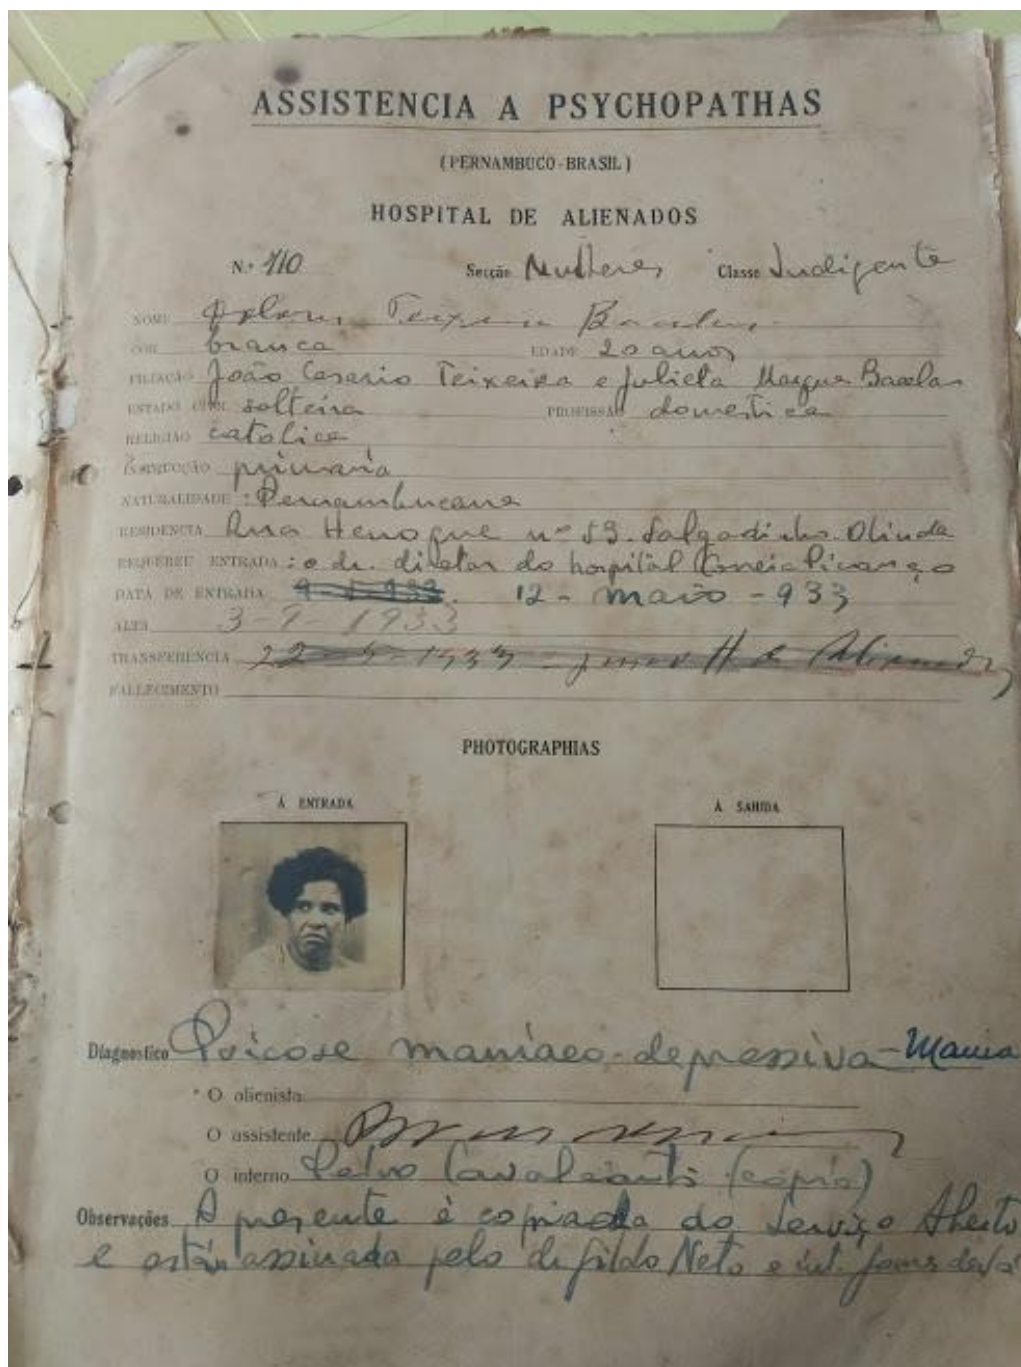 ASSISTENCIA A PSYCHOPATHAS
(PERNAMBUCO-BRASIL)
HOSPITAL DE ALIENADOS
N.º 110 Secção Mulheres Classe Indigente
NOME Teixeira
COR branca EDADE 20 annos
FILIAÇÃO João Cesario Teixeira e Julieta Bacelar
ESTADO CIVIL solteira PROFISSÃO domestica
RELIGIÃO catolica
INSTRUCÇÃO primaria
NATURALIDADE : Pernambucana
RESIDENCIA Rua Henoque nº 59. Salgadinho. Olinda
REQUEREU ENTRADA : o dr. diretor do hospital Correia Picanço
DATA DE ENTRADA 12 - maio - 933
ALTA 3-9-1933
TRANSFERENCIA
FALLECIMENTO
PHOTOGRAPHIAS
Á ENTRADA Á SAHIDA
Diagnostico Psicose maniaco-depressiva - Mania
O alienista
O assistente
O interno Pedro Cavalcanti (copia)
Observações A presente é copiada do Serviço Aberto
e está assinada pelo dr. Neto e int.